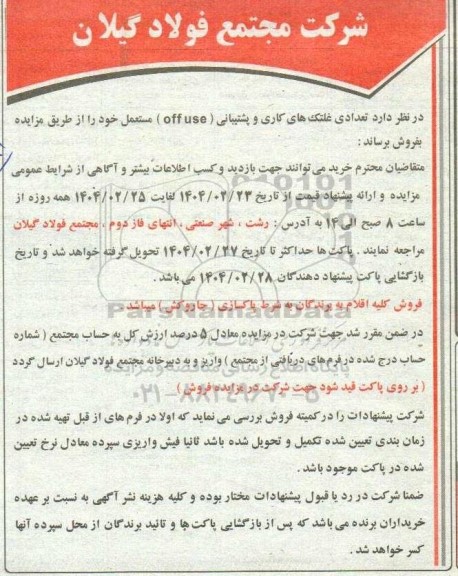 شرکت مجتمع فولاد گیلان
در نظر دارد تعدادی غلتک های کاری و پشتیبانی ( off use ) مستعمل خود را از طریق مزایده
بفروش برساند :
متقاضیان محترم خرید می توانند جهت بازدید و کسب اطلاعات بیشتر و آگاهی از شرایط عمومی
مزایده و ارائه پیشنهاد قیمت از تاریخ ۱۴۰۴/۰۲/۲۳ لغایت ۱۴۰۴/۰۲/۲۵ همه روزه از
ساعت ۸ صبح الی ۱۴ به آدرس : رشت ، شهر صنعتی ، انتهای فاز دوم ، مجتمع فولاد گیلان
مراجعه نمایند . پاکت ها حداکثر تا تاریخ ۱۴۰۴/۰۲/۲۷ تحویل گرفته خواهد شد و تاریخ
بازگشایی پاکت پیشنهاد دهندگان ۱۴۰۴/۰۲/۲۸ می باشد .
فروش کلیه اقلام به برندگان به شرط پاکسازی ( جاروکش ) میباشد
در ضمن مقرر شد جهت شرکت در مزایده معادل ۵ درصد ارزش کل به حساب مجتمع ( شماره
حساب درج شده در فرم های دریافتی از مجتمع ) واریز و به دبیرخانه مجتمع فولاد گیلان ارسال گردد
( بر روی پاکت قید شود جهت شرکت در مزایده فروش )
شرکت پیشنهادات را در کمیته فروش بررسی می نماید که اولا در فرم های از قبل تهیه شده در
زمان بندی تعیین شده تکمیل و تحویل شده باشد ثانیا فیش واریزی سپرده معادل نرخ تعیین
شده در پاکت موجود باشد .
ضمنا شرکت در رد یا قبول پیشنهادات مختار بوده و کلیه هزینه نشر آگهی به نسبت بر عهده
خریداران برنده می باشد که پس از بازگشایی پاکت ها و تائید برندگان از محل سپرده آنها
کسر خواهد شد .
ParsNamadData
پایگاه اطلاع رسانی مناقصه و مزایده
۰۲۱-۸۸۳۴۹۶۷۰-۵